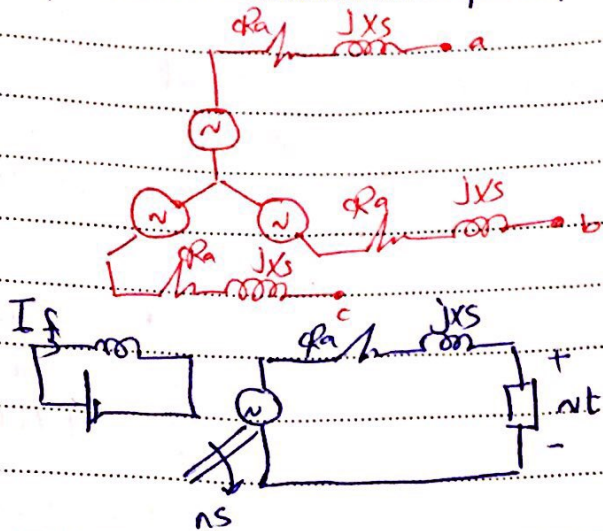 Ra jxs a
Ra jxs b
Ra jxs
c
If
Ra jxs
+
~t
-
ns